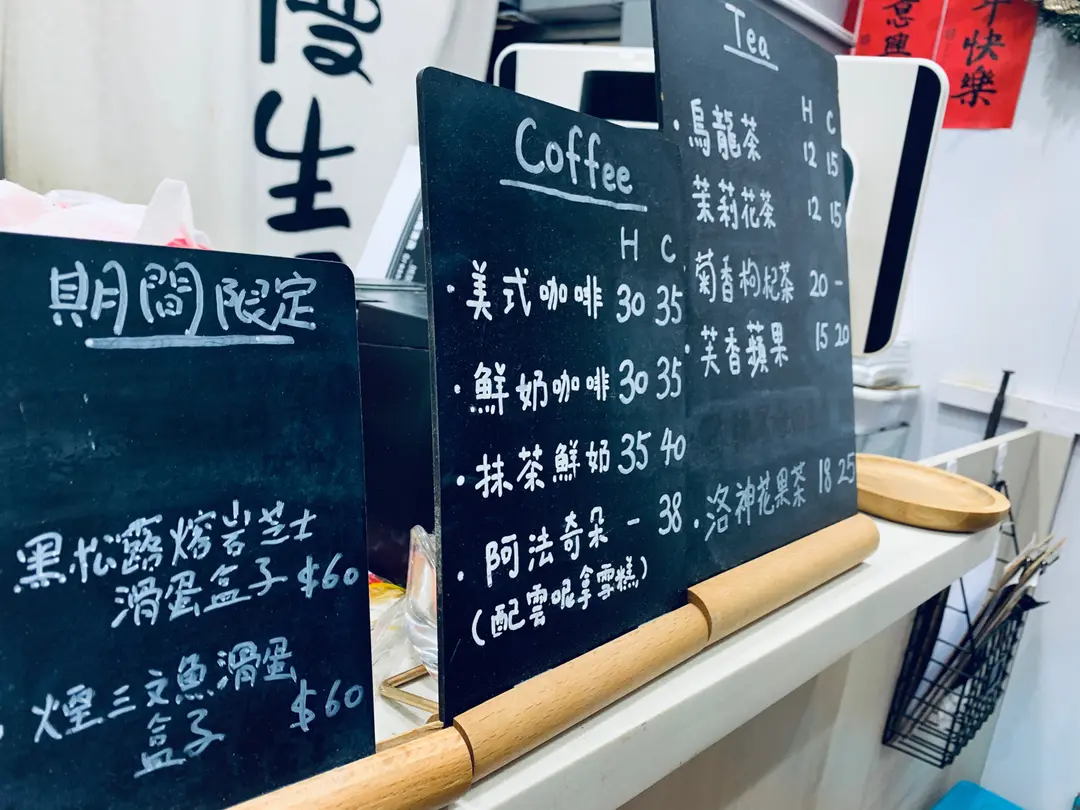 慢生
期間限定
黑松露熔岩芝士
滑蛋盒子 $60
煙三文魚滑蛋
盒子 $60
Coffee
H C
·美式咖啡 30 35
·鮮奶咖啡 30 35
·抹茶鮮奶 35 40
·阿法奇朵 - 38
(配雲呢拿雪糕)
Tea
H C
·烏龍茶 12 15
茉莉花茶 12 15
菊香枸杞茶 20 -
·芙香蘋果 15 20
·洛神花果茶 18 25
意興
年快樂